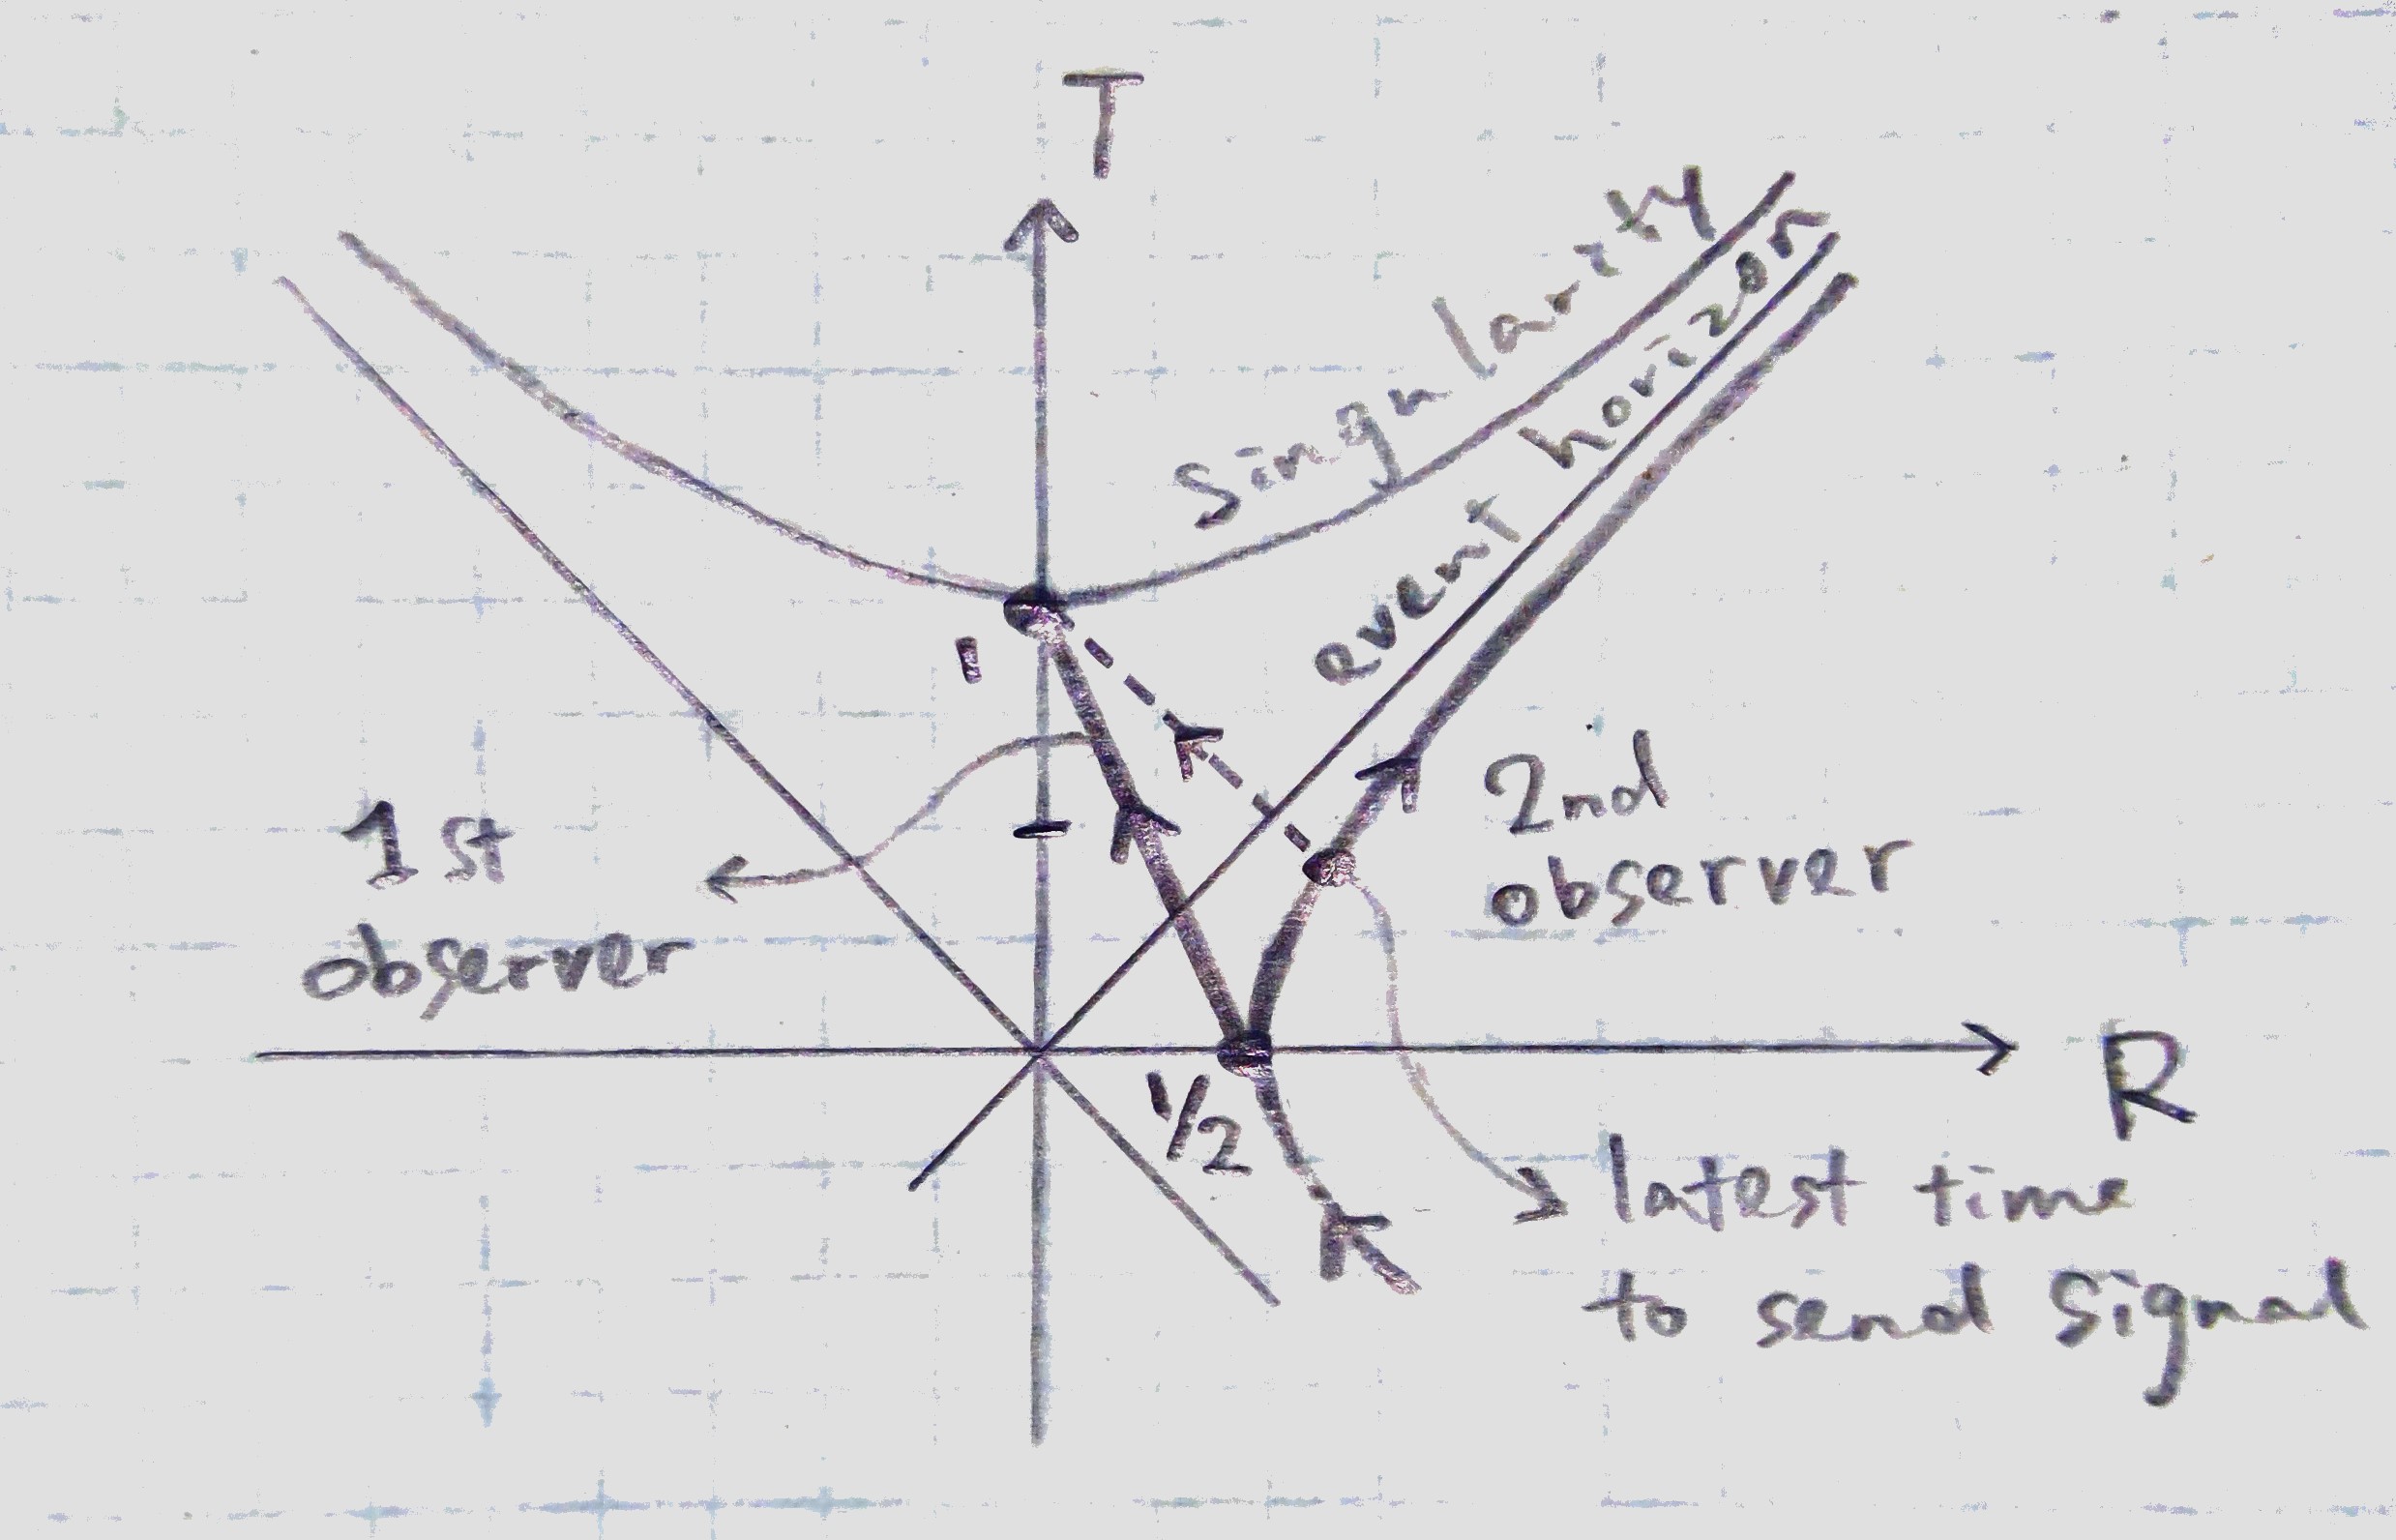 T
Singularity
event horizon
1
1st
observer
2nd
observer
R
1/2
latest time
to send signal